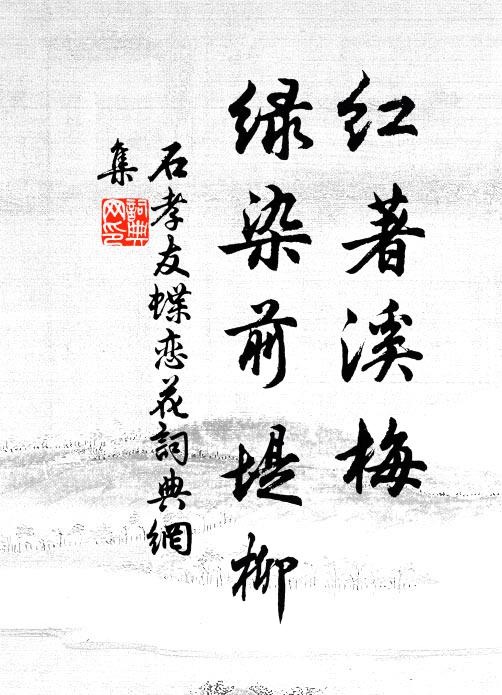 红著溪梅
绿染前堤柳
石孝友蝶恋花詞典網
集
詞典网印